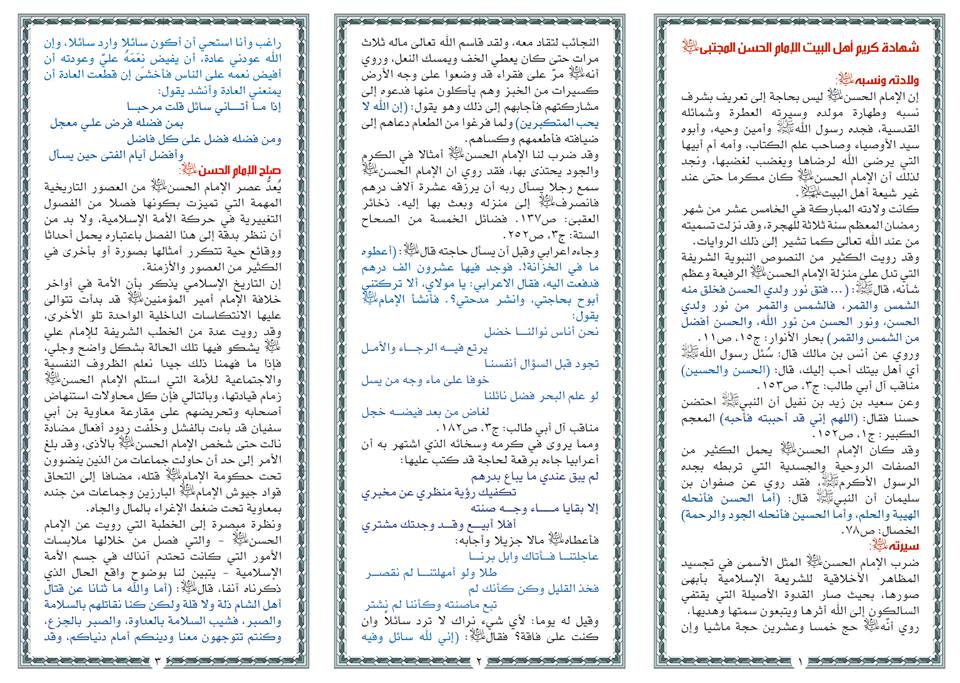 شهادة كريم أهل البيت الإمام الحسن المجتبى
ولادته ونسبه:
إن الإمام الحسن ليس بحاجة إلى تعريف بشرف
نسبه وطهارة مولده وسيرته العطرة وشمائله
القدسية، فجده رسول الله وأمين وحيه، وأبوه
سيد الأوصياء وصاحب علم الكتاب، وأمه أم أبيها
التي يرضى الله لرضاها ويغضب لغضبها، ونجد
لذلك أن الإمام الحسن كان مكرما حتى عند
غير شيعة أهل البيت.
كانت ولادته المباركة في الخامس عشر من شهر
رمضان المعظم سنة ثلاثة للهجرة، وقد نزلت تسميته
من عند الله تعالى كما تشير إلى ذلك الروايات.
وقد رويت الكثير من النصوص النبوية الشريفة
التي تدل على منزلة الإمام الحسن الرفيعة وعظم
شأنه، قال: (... فتق نور ولدي الحسن فخلق منه
الشمس والقمر، فالشمس والقمر من نور ولدي
الحسن، ونور الحسن من نور الله، والحسن أفضل
من الشمس والقمر) بحار الأنوار: ج١٥، ص١١.
وروي عن أنس بن مالك قال: سُئل رسول الله
أي أهل بيتك أحب إليك، قال: (الحسن والحسين)
مناقب آل أبي طالب: ج٣، ص١٥٣.
وعن سعيد بن زيد بن نفيل أن النبي احتضن
حسنا فقال: (اللهم إني قد أحببته فأحبه) المعجم
الكبير: ج١، ص١٥٢.
وقد كان الإمام الحسن يحمل الكثير من
الصفات الروحية والجسدية التي تربطه بجده
الرسول الأكرم، فقد روي عن صفوان بن
سليمان أن النبي قال: (أما الحسن فأنحله
الهيبة والحلم، وأما الحسين فأنحله الجود والرحمة)
الخصال: ص٧٨.
سيرته:
ضرب الإمام الحسن المثل الأسمى في تجسيد
المظاهر الأخلاقية للشريعة الإسلامية بأبهى
صورها، بحيث صار القدوة الأصيلة التي يقتفي
السالكون إلى الله أثرها ويتبعون سمتها وهديها.
روي أنّه حج خمسا وعشرين حجة ماشيا وإن
١
النجائب لتقاد معه، ولقد قاسم الله تعالى ماله ثلاث
مرات حتى كان يعطي الخف ويمسك النعل، وروي
أنه مرّ على فقراء قد وضعوا على وجه الأرض
كسيرات من الخبز وهم يأكلون منها فدعوه إلى
مشاركتهم فأجابهم إلى ذلك وهو يقول: (إن الله لا
يحب المتكبرين) ولما فرغوا من الطعام دعاهم إلى
ضيافته فأطعمهم وكساهم.
وقد ضرب لنا الإمام الحسن أمثالا في الكرم
والجود يحتذى بها، فقد روي ان الإمام الحسن
سمع رجلا يسأل ربه أن يرزقه عشرة آلاف درهم
فانصرف إلى منزله وبعث بها إليه. ذخائر
العقبى: ص١٣٧. فضائل الخمسة من الصحاح
الستة: ج٣، ص٢٥٢.
وجاءه اعرابي وقبل أن يسأل حاجته قال: (أعطوه
ما في الخزانة!. فوجد فيها عشرون الف درهم
فدفعت اليه، فقال الاعرابي: يا مولاي، ألا تركتني
أبوح بحاجتي، وانشر مدحتي؟. فأنشأ الإمام
يقول:
نحن أناس نوالنـــا خضل
يرتع فيـــه الرجـــاء والأمـل
تجود قبل السؤال أنفسنـا
خوفا على ماء وجه من يسل
لو علم البحر فضل نائلنا
لغاض من بعد فيضـــه خجل
مناقب آل أبي طالب: ج٣، ص١٨٢.
ومما يروى في كرمه وسخائه الذي اشتهر به أن
أعرابيا جاءه برقعة لحاجة قد كتب عليها:
لم يبق عندي ما يباع بدرهم
تكفيك رؤية منظري عن مخبري
إلا بقايا مـــاء وجـــه صنته
أفلا أبيـــع وقـــد وجدتك مشتري
فأعطاه مالا جزيلا وأجابه:
عاجلتنـا فـأتاك وابل برنـا
طلا ولو أمهلتنـا لم نقصـــر
فخذ القليل وكن كأنك لم
تبع ماصنته وكأننا لم نٍشتر
وقيل له يوما: لأي شيء نراك لا ترد سائلا وان
كنت على فاقة؟ فقال: (إني لله سائل وفيه
٢
راغب وأنا استحي أن أكون سائلا وارد سائلا، وإن
الله عودني عادة، أن يفيض نِعَمَهُ عليّ وعودته أن
أفيض نعمه على الناس فأخشى إن قطعت العادة أن
يمنعني العادة وأنشد يقول:
إذا مـا أتـــاني سائل قلت مرحبـا
بمن فضله فرض علي معجل
ومن فضله فضل على كل فاضل
وأفضل أيام الفتى حين يسأل
صلح الإمام الحسن:
يُعدُّ عصر الإمام الحسن من العصور التاريخية
المهمة التي تميزت بكونها فصلا من الفصول
التغييرية في حركة الأمة الإسلامية، ولا بد من
أن ننظر بدقة إلى هذا الفصل باعتباره يحمل أحداثا
ووقائع حية تتكرر أمثالها بصورة أو بأخرى في
الكثير من العصور والأزمنة.
إن التاريخ الإسلامي يذكر بأن الأمة في أواخر
خلافة الإمام أمير المؤمنين قد بدأت تتوالى
عليها الانتكاسات الداخلية الواحدة تلو الأخرى،
وقد رويت عدة من الخطب الشريفة للإمام علي
يشكو فيها تلك الحالة بشكل واضح وجلي،
فإذا ما فهمنا ذلك جيدا نعلم الظروف النفسية
والاجتماعية للأمة التي استلم الإمام الحسن
زمام قيادتها، وبالتالي فإن كل محاولات استنهاض
أصحابه وتحريضهم على مقارعة معاوية بن أبي
سفيان قد باءت بالفشل وخلّفت ردود أفعال مضادة
نالت حتى شخص الإمام الحسن بالأذى، وقد بلغ
الأمر إلى حد أن حاولت جماعات من الذين ينضوون
تحت حكومة الإمام قتله، مضافا إلى التحاق
قواد جيوش الإمام البارزين وجماعات من جنده
بمعاوية تحت ضغط الإغراء بالمال والجاه.
ونظرة مبصرة إلى الخطبة التي رويت عن الإمام
الحسن – والتي فصل من خلالها ملابسات
الأمور التي كانت تحتدم آنذاك في جسم الأمة
الإسلامية – يتبين لنا بوضوح واقع الحال الذي
ذكرناه آنفا، قال: (أما والله ما ثنانا عن قتال
أهل الشام ذلة ولا قلة ولكن كنا نقاتلهم بالسلامة
والصبر، فشيب السلامة بالعداوة، والصبر بالجزع،
وكنتم تتوجهون معنا ودينكم أمام دنياكم، وقد
٣